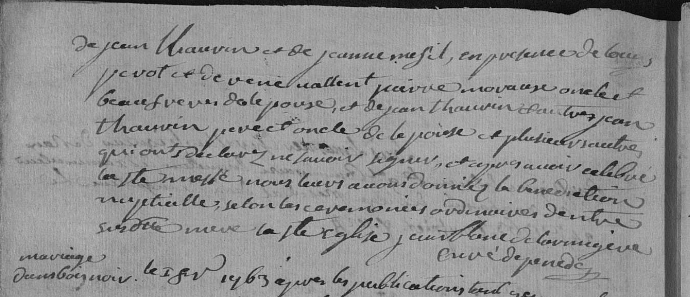 de jean thauvin et de jeanne mesil, en presence de louis
perot et de rené vallent pierre moreau oncle et
beaufreres de le pouse, et de jean thauvin et autres jean
thauvin pere et oncle de le pouse et plusieurs autre
qui ont declarez ne savoir signer, et apres avoir celebré
la ste messe nous leurs avons donnez la benediction
nuptialle, selon les ceremonies ordinaires de notre
mere la ste eglise
curé de
mariage
dansboisnoir. le 1763 apres les publications